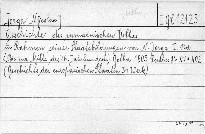 Jorga Nicolau
II 12123
Geschichte des rumaenischen Volkes
im Rahmen seiner Staatsbildungen von N. Jorga I. Bd.
(Bis zur Mitte des 16. Jahrhunderts) Gotha 1905 XIV 402
(Geschichte der europäischen Staaten 34 Werk)